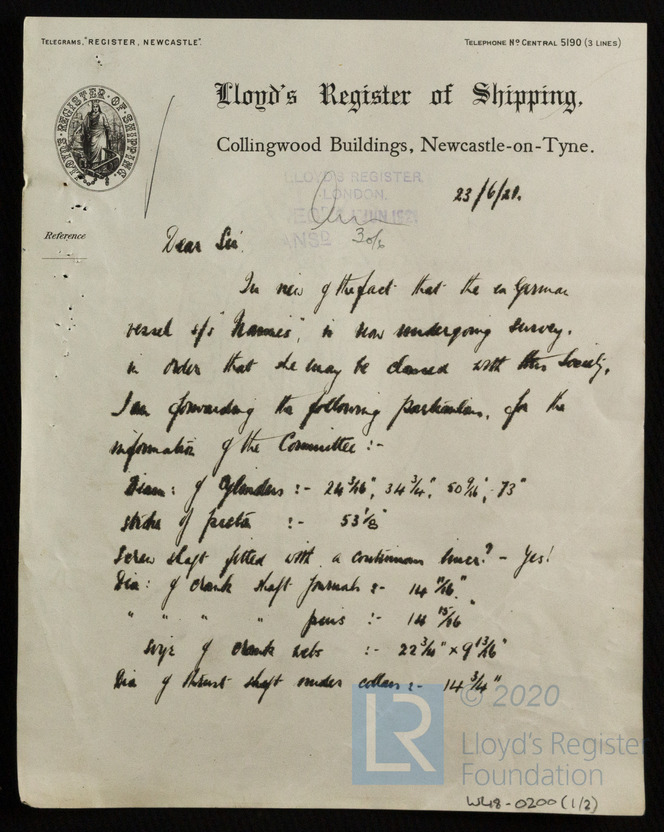 TELEGRAMS, "REGISTER, NEWCASTLE".
TELEPHONE No CENTRAL 5190 (3 LINES)
Lloyd's Register of Shipping,
Collingwood Buildings, Newcastle-on-Tyne.
LLOYD'S REGISTER OF SHIPPING
LLOYD'S REGISTER,
LONDON.
JUN 1921
ANSD
30/6
23/6/21.
Reference
Dear Sir
In view of the fact that the ex German
vessel s/s " ", is now undergoing survey,
in order that she may be classed with this Society,
I am forwarding the following particulars, for the
information of the Committee :-
Diam: of Cylinders :- 24 3/16", 34 3/4", 50 9/16", 73"
stroke of piston :- 53 1/8"
Screw shaft fitted with a continuous liner? - Yes!
Dia: of crank shaft Journals :- 14 11/16".
" " " " pins :- 14 15/16"
size of crank webs :- 22 3/4" x 9 13/16"
Dia of thrust shaft under collars :- 14 3/4"
© 2020
LR
Lloyd's Register
Foundation
W48-0200 (1/2)